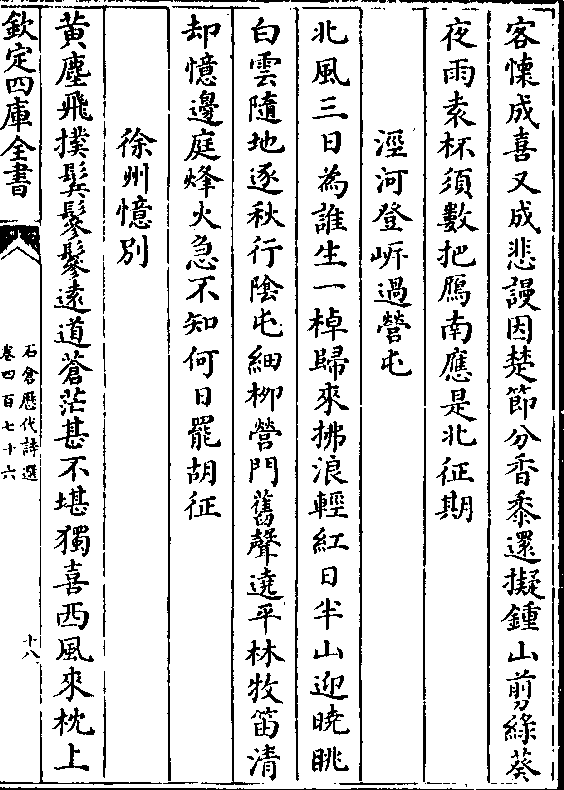 客懐成喜又成悲謾因楚節分香黍還擬鍾山剪緑葵
夜雨素杯須數把鴈南應是北征期
涇河登㟁過營屯
北風三日為誰生一棹歸來拂浪輕紅日半山迎曉眺
白雲隨地逐秋行陰屯細栁營門舊聲遶平林牧笛清
却憶邊庭烽火急不知何日罷胡征
徐州憶别
黄塵飛撲鬂鬖鬖逺道蒼茫甚不堪獨喜西風來枕上
欽定四庫全書
石倉歴代詩選
卷四百七十六
十八